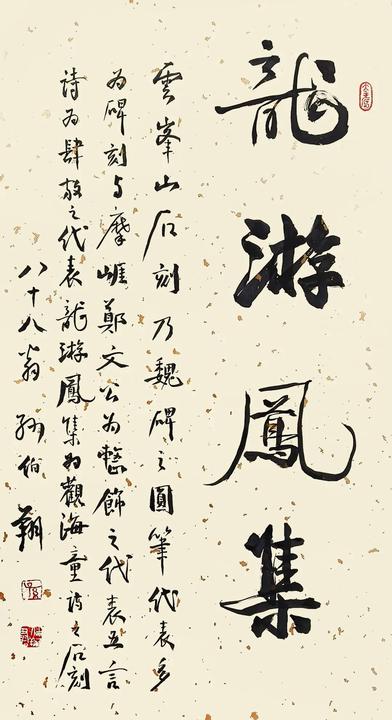 龍游鳳集
雲峯山石刻乃魏碑之圓筆代表多
為碑刻与摩崖鄭文公為整飾之代表五言
詩為肆放之代表龍游鳳集為觀海童詩之石刻
八十八翁孫伯翔